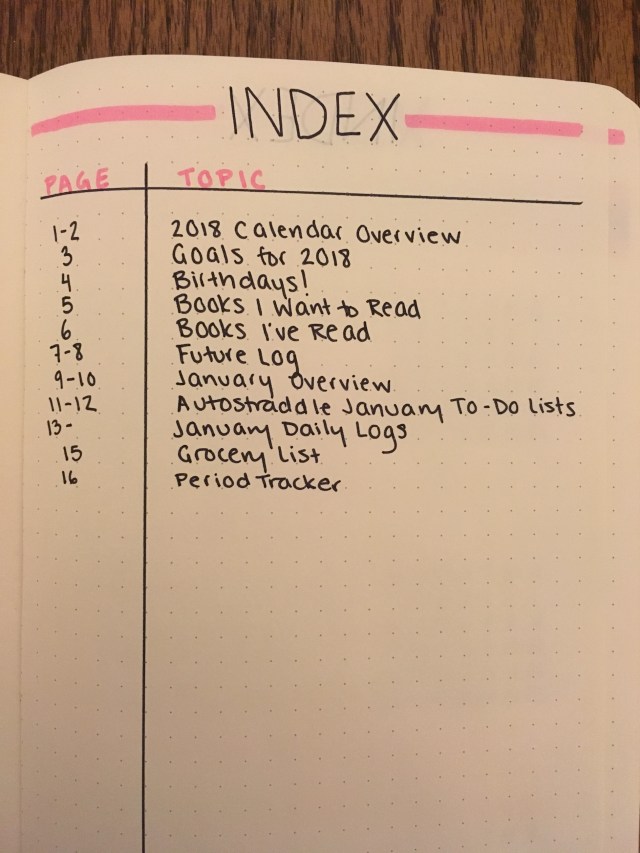 INDEX
PAGE TOPIC
1-2 2018 Calendar Overview
3 Goals for 2018
4 Birthdays!
5 Books I Want to Read
6 Books I've Read
7-8 Future Log
9-10 January Overview
11-12 Autostraddle January To-Do Lists
13- January Daily Logs
15 Grocery List
16 Period Tracker